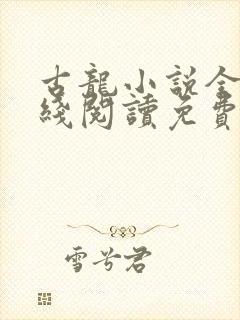 古龍小說全
綫閱讀免費
雪兮君